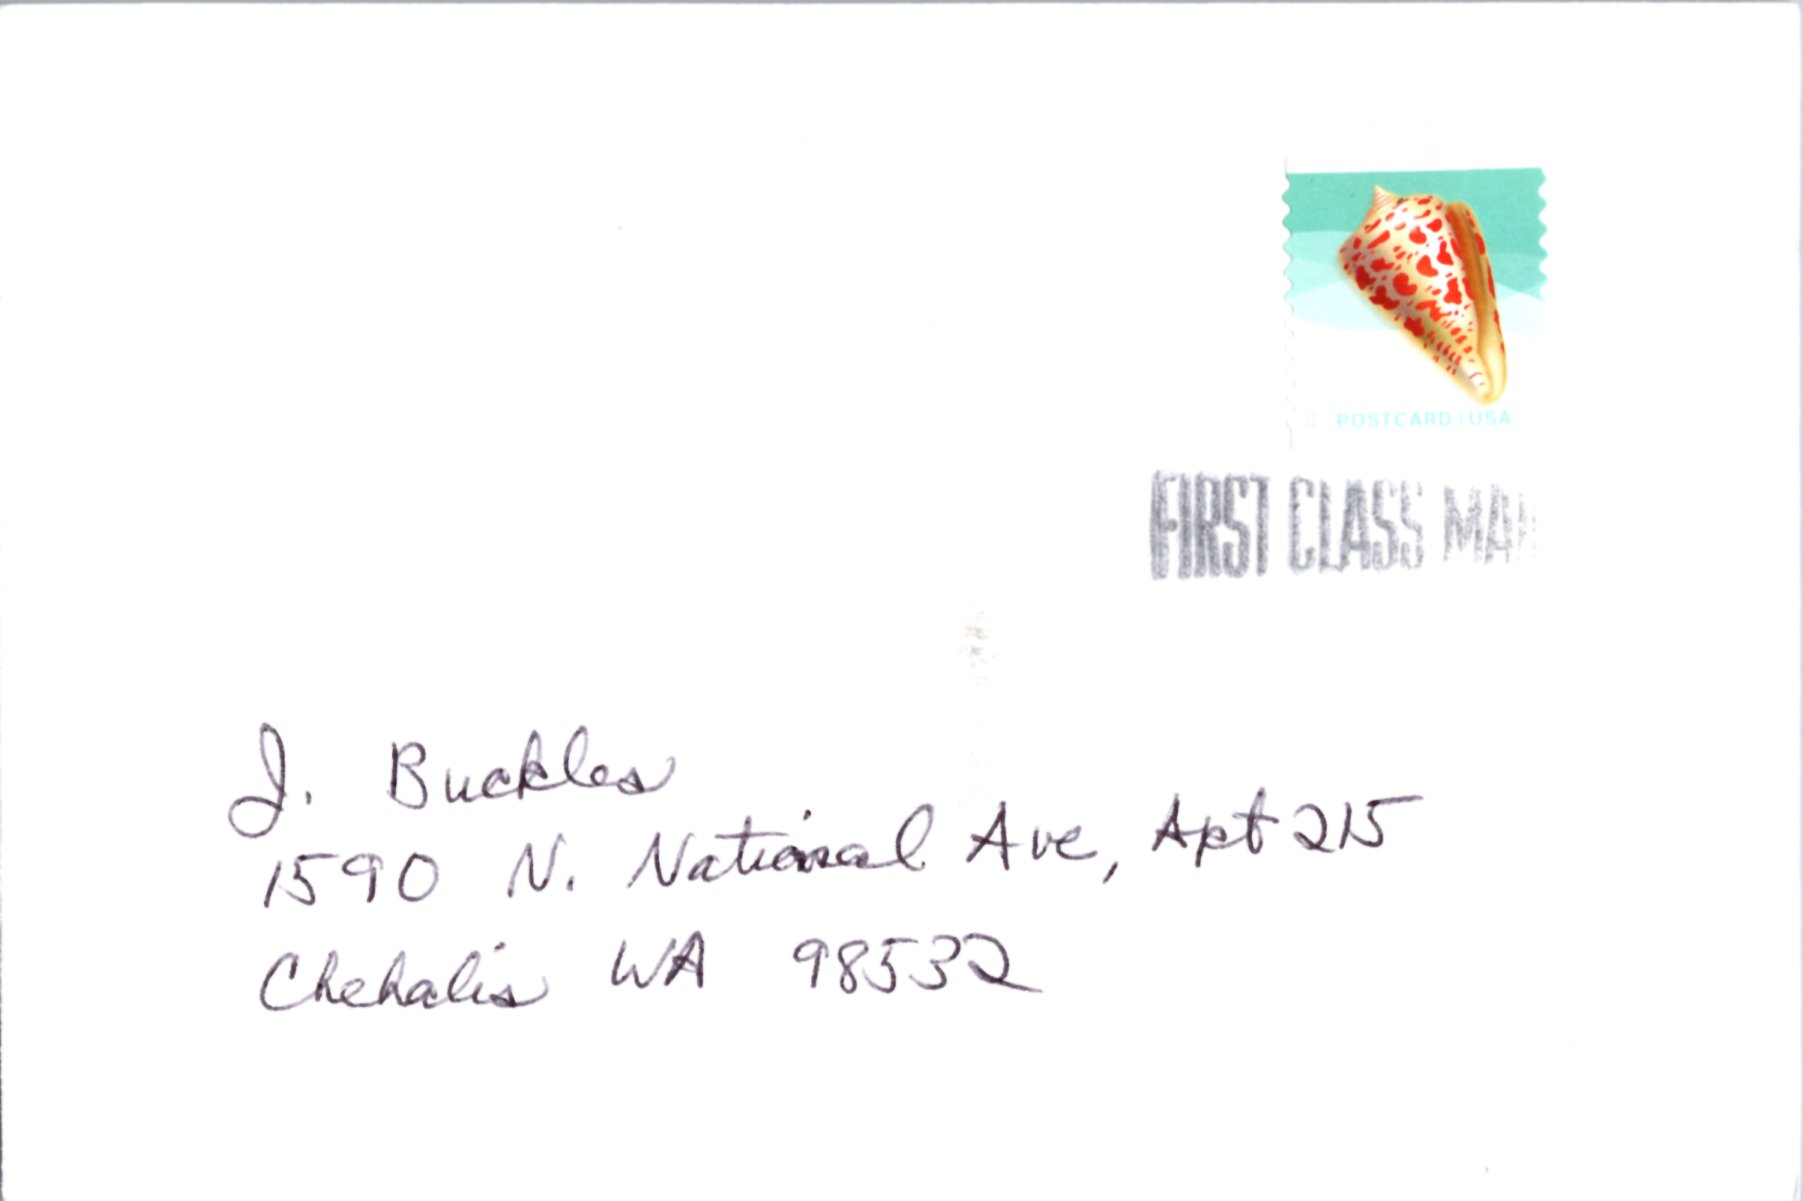 POSTCARD | USA
FIRST CLASS MAI
J. Buckles
1590 N. National Ave, Apt 215
Chehalis WA 98532